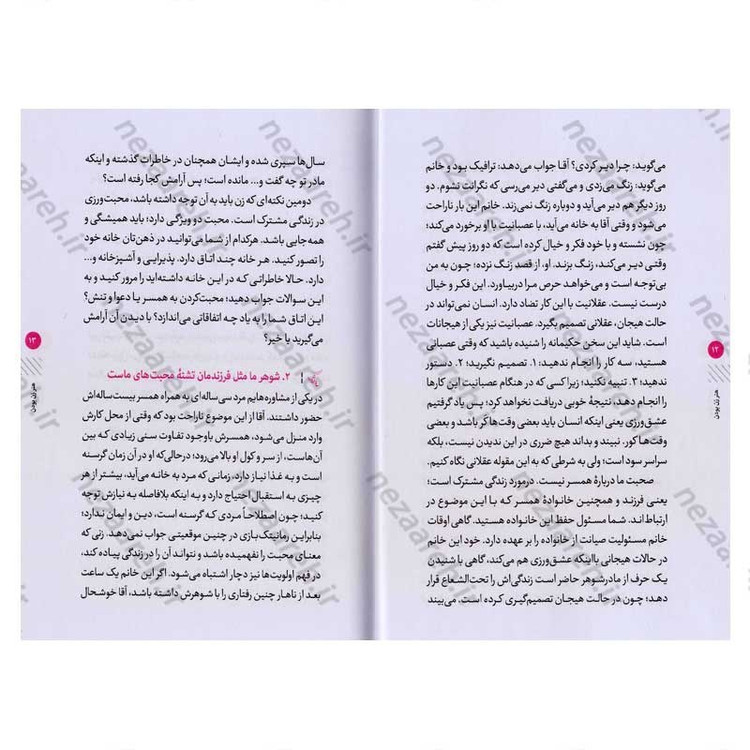 می‌گوید: چرا دیر کردی؟ آقا جواب می‌دهد: ترافیک بود و خانم
می‌گوید: زنگ می‌زدی و می‌گفتی دیر می‌رسی که نگرانت نشوم. دو
روز دیگر هم دیر می‌آید و دوباره زنگ نمی‌زند. خانم این بار ناراحت
می‌شود و وقتی آقا به خانه می‌آید، با عصبانیت با او برخورد می‌کند؛
چون نشسته و با خود فکر و خیال کرده است که دو روز پیش گفتم
وقتی دیر می‌کند، زنگ بزند. او، از قصد زنگ نزده؛ چون به من
بی‌توجه است و می‌خواهد حرص مرا دربیاورد. این فکر و خیال
درست نیست. عقلانیت با این کار تضاد دارد. انسان نمی‌تواند در
حالت هیجان، عقلانی تصمیم بگیرد. عصبانیت نیز یکی از هیجانات
است. شاید این سخن حکیمانه را شنیده باشید که وقتی عصبانی
هستید، سه کار را انجام ندهید: ۱. تصمیم نگیرید؛ ۲. دستور
ندهید؛ ۳. تنبیه نکنید؛ زیرا کسی که در هنگام عصبانیت این کارها
را انجام دهد، نتیجهٔ خوبی دریافت نخواهد کرد؛ پس یاد گرفتیم
عشق‌ورزی یعنی اینکه انسان باید بعضی وقت‌ها کر باشد و بعضی
وقت‌ها کور. نبیند و بداند هیچ ضرری در این ندیدن نیست، بلکه
سراسر سود است؛ ولی به شرطی که به این مقوله عقلانی نگاه کنیم.
صحبت ما دربارهٔ همسر نیست. درمورد زندگی مشترک است؛
یعنی فرزند و همچنین خانوادهٔ همسر که با این موضوع در
ارتباط‌اند. شما مسئول حفظ این خانواده هستید. گاهی اوقات
خانم مسئولیت صیانت از خانواده را بر عهده دارد. خود این خانم
در حالات هیجانی با اینکه عشق‌ورزی هم می‌کند، گاهی با شنیدن
یک حرف از مادرشوهر حاضر است زندگی‌اش را تحت‌الشعاع قرار
دهد؛ چون در حالت هیجان تصمیم‌گیری کرده است. می‌بیند
۱۲
هنر زن بودن
سال‌ها سپری شده و ایشان همچنان در خاطرات گذشته و اینکه
مادر تو چه گفت و... مانده است؛ پس آرامش کجا رفته است؟
دومین نکته‌ای که زن باید به آن توجه داشته باشد، محبت‌ورزی
در زندگی مشترک است. محبت دو ویژگی دارد: باید همیشگی و
همه‌جایی باشد. هرکدام از شما می‌توانید در ذهن‌تان خانه خود
را تصور کنید. هر خانه چند اتاق دارد. پذیرایی و آشپزخانه و...
دارد. حالا خاطراتی که در این خانه داشته‌اید را مرور کنید و به
این سوالات جواب دهید؛ محبت‌کردن به همسر یا دعوا و تنش؟
این اتاق شما را به یاد چه اتفاقاتی می‌اندازد؟ با دیدن آن آرامش
می‌گیرید یا خیر؟
۲. شوهر ما مثل فرزندمان تشنهٔ محبت‌های ماست
در یکی از مشاوره‌هایم مرد سی ساله‌ای به همراه همسر بیست‌ساله‌اش
حضور داشتند. آقا از این موضوع ناراحت بود که وقتی از محل کارش
وارد منزل می‌شود، همسرش باوجود تفاوت سنی زیادی که بین
آن‌هاست، از سر و کول او بالا می‌رود؛ درحالی‌که او در آن زمان گرسنه
است و به غذا نیاز دارد. زمانی که مرد به خانه می‌آید، بیشتر از هر
چیزی به استقبال احتیاج دارد و به اینکه بلافاصله به نیازش توجه
کنید؛ چون اصطلاحاً مردی که گرسنه است، دین و ایمان ندارد؛
بنابراین رمانتیک‌بازی در چنین موقعیتی جواب نمی‌دهد. زنی که
معنای محبت را نفهمیده باشد و نتواند آن را در زندگی پیاده کند،
در فهم اولویت‌ها نیز دچار اشتباه می‌شود. اگر این خانم یک ساعت
بعد از ناهار چنین رفتاری را با شوهرش داشته باشد، آقا خوشحال
۱۳
هنر زن بودن
nezaareh.ir